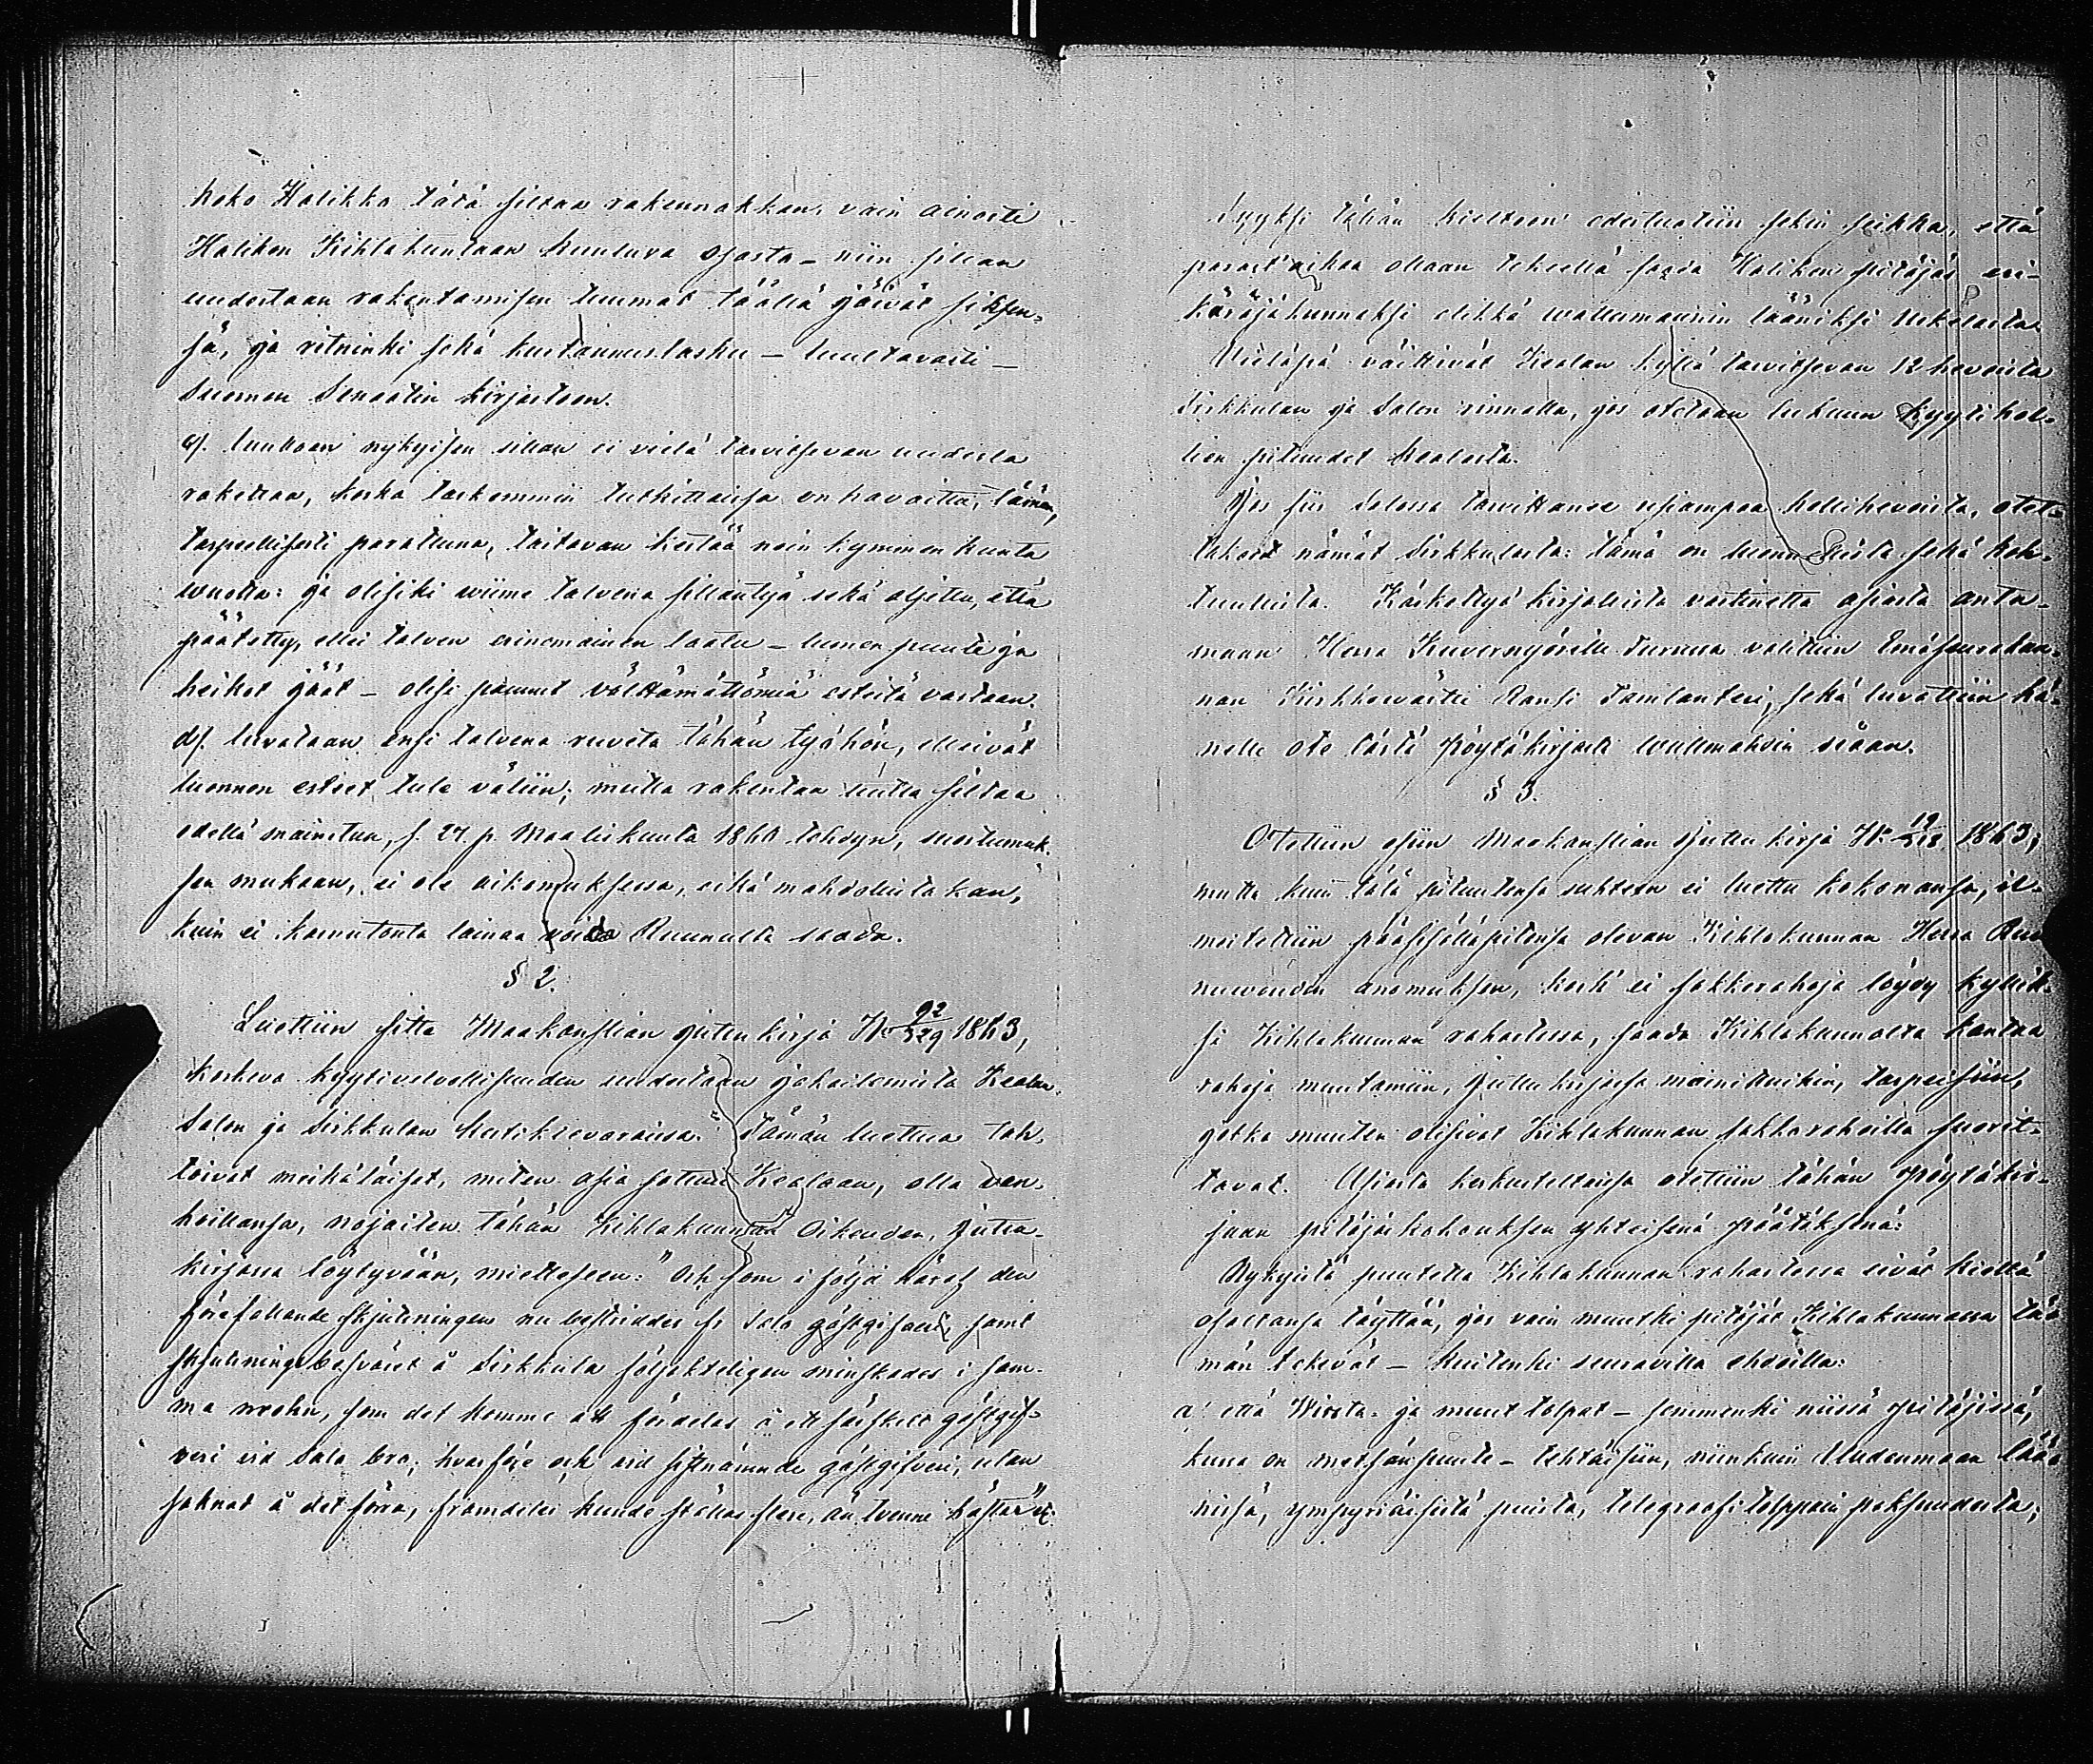 koko Halikko tätä siltaa rakennakkan, vain ainoasti
Halikon Kihlakuntaan kuuluva osasta – niin sillan
uudestaan rakentamisen tuumat täällä jäivät siksen-
sä, ja ritninki sekä kustannuslasku – luultavasti –
Suomen Senaatin kirjastoon.
c). luullaan nykyisen sillan ei vielä tarvitsevan uudesta
rakettaa, koska tarkemmin tutkittaissa on havaittu, tämän,
tarpeellisesti parattuna, taitavan kestää noin kymmenkunta
vuotta: ja olisiki wiime talvena sillantyö sekä aljettu, että
päätetty, ellei talven erinomainen laatu – lumen puute ja
heikot jäät – olisi pannut välttämättömiä esteitä vastaan.
d). luvataan ensi talvena ruveta tähän työhön, elleivät
luonnon esteet tule väliin; mutta rakentaa uutta siltaa
edellä mainitun, s. 27. p. Maaliskuuta 1860 tehdyn, suostumuk-
sen mukaan, ei ole aikomuksessa, eikä mahdollista kan,
kuin ei korvutonta lainaa voida Ruunulta saada.
§ 2.
Luettiin sitte Maakanslian juttukirja N:o 92/529 1863,
koskeva kyytivelvollisuuden uudestaan jakoilemista Kealan,
Salon ja Sirkkulan kestikievareissa. Tämän luettua tah-
toivat meikäläiset, miten asia sattuu Kealaan, olla van-
hoillansa, nojaiten tähän Kihlakunnan Oikeuden, juttu-
kirjassa löytyvään, mietteseen: "Och som i följd häraf den
förefallande skjutsningen nu bestriddes fr. Salo gästgifveri, samt
skjutsningsbesväret å Sirkkula följaktligen minskades i sam-
ma mohn, som det komme att fördelas å ett särskilt gästgif-
veri vid Salo bro; hvarföre och vid sistnämnde gästgifveri, utan
saknad å det förra, framdeles kunde ställas flere, än tvenne hästar" etc.
Syyksi tähän kieltoon edestuotiin sekin seikka, että
parast'aikaa ollaan tekeellä saada Halikon pitäjäs eri-
käräjäkunnaksi elikkä wallesmannin lääniksi Uskelasta.
Vieläpä väittivät Kealan kyllä tarvitsevan 12 hevoista
Sirkkulan ja Salon rinnalla, jos otetaan lukuun kyyti hol-
lien pituudet Kealasta.
Jos siis Salossa tarvittanee usiampaa hollihevoista, otet-
takoot nämät Sirkkulasta: tämä on luonnollista sekä koh-
tuullista. Käskettyä kirjallista vastinetta asiasta anta-
maan Herra Kuvernyörille Turussa valittiin Emäseurakun-
nan Kirkkoväärtti Ransi Tamlanteri, sekä luvattiin hä-
nelle ote tästä pöytäkirjasta wallmahdin siaan.
§ 3.
Otettiin esiin Maakanslian juttukirja N:o 19/518 1863;
mutta kuin tätä pituutensa suhteen ei luettu kokonansa, il-
moitettiin pääsisällä pitensä olevan Kihlakunnan Herra Ruu
nuwoudin anomuksen, kosk' ei sakkorahoja löydy kyllik-
si Kihlakunnan rahastossa, saada Kihlakunnalta kantaa
rahoja muutamiin, juttukirjassa mainittuihin, tarpeisiin,
jotka muuten olisivat Kihlakunnan sakkorahoilla suorit-
tavat. Asiasta keskusteltaissa otettiin tähän pöytäkir-
jaan pitäjäskokouksen yhteisenä päätöksenä:
Nykyistä puutetta Kihlakunnan rahastossa eivät kiellä
osaltansa täyttää, jos vain muutki pitäjät Kihlakunnassa tä-
män tekevät – kuitenki seuraavilla ehdoilla:
a) että Wirsta- ja muut tolpat – semmenki niissä pitäjissä,
kussa on metsänpuute – tehtäisiin, niinkuin Uudenmaan lää-
nissä, ympyriäisistä puista, telegraafi tolppain paksuudesta;